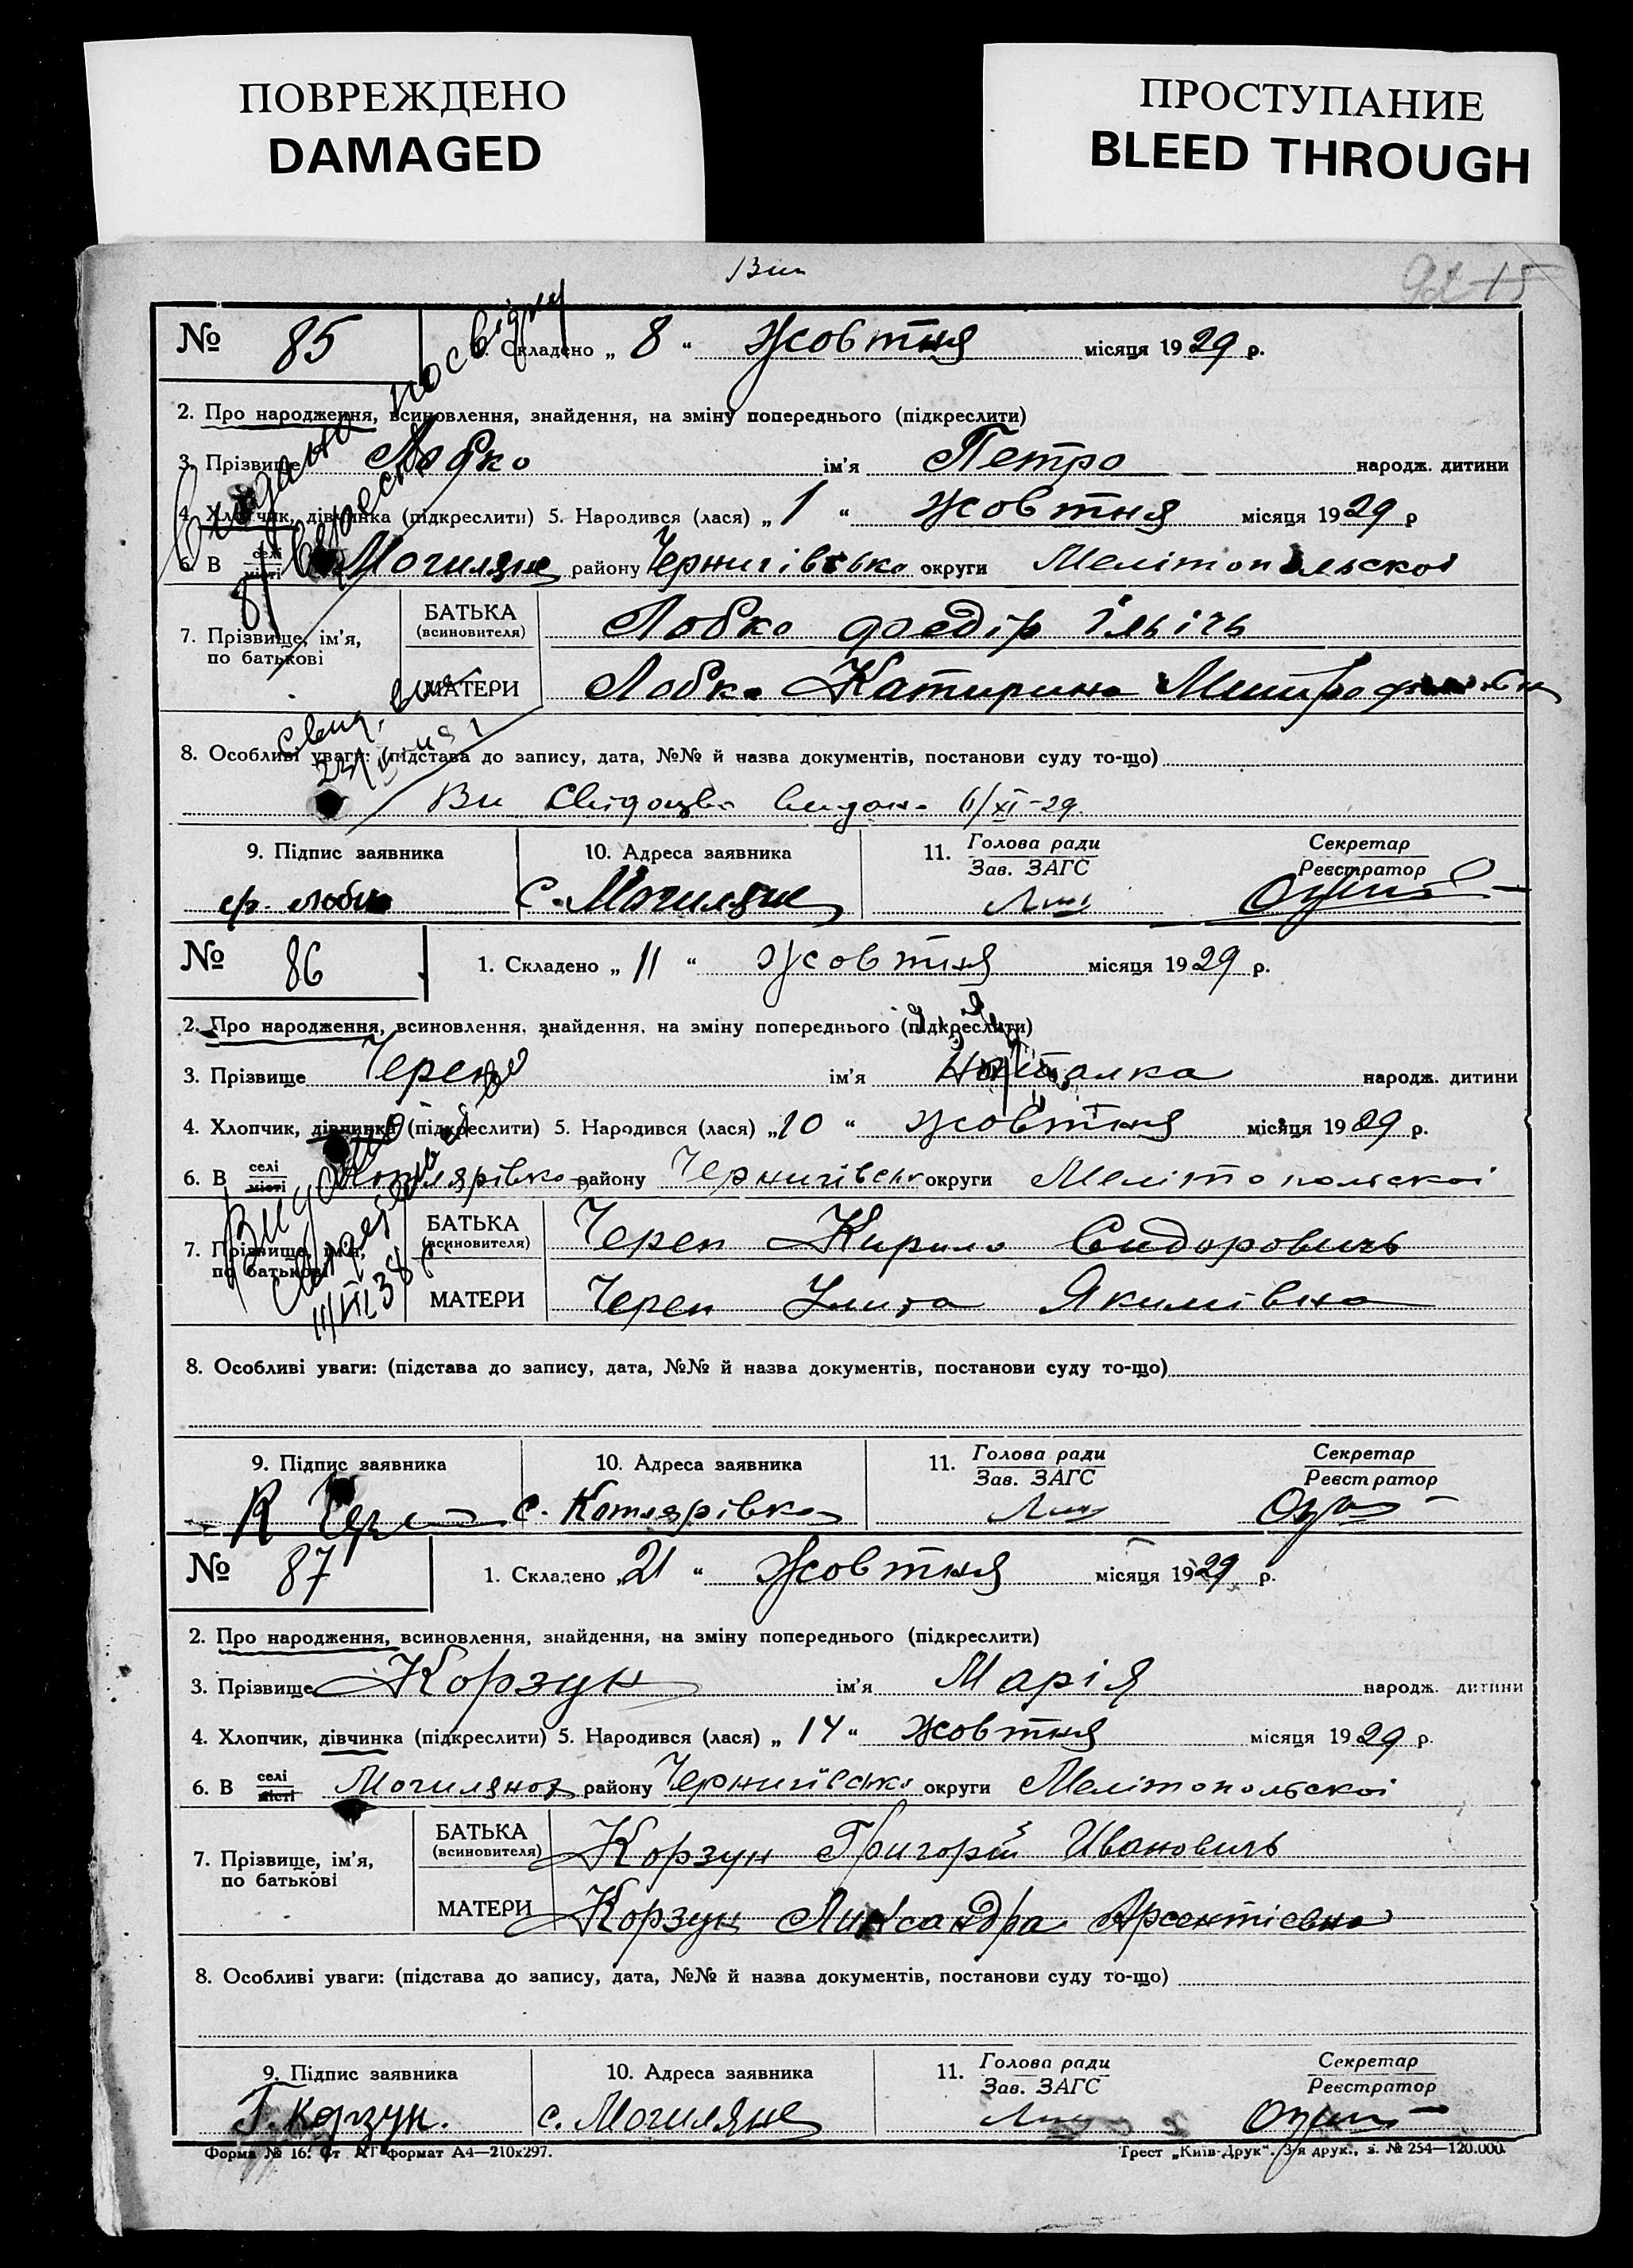 ПОВРЕЖДЕНО
DAMAGED
ПРОСТУПАНИЕ
BLEED THROUGH
№ 85
1. Складено „ 8 “ Жовтня місяця 1929 р.
2. Про народження, всиновлення, знайдення, на зміну попереднього (підкреслити)
3. Прізвище Лобко ім'я Петро народж. дитини
4. Хлопчик, дівчинка (підкреслити) 5. Народився (лася) „ 1 “ жовтня місяця 1929 р
6. В селі місті Могиляне району Чернигівсько округи Мелітопольскоі
7. Прізвище, ім'я, по батькові
БАТЬКА (всиновителя) Лобко Федір Ільічь
МАТЕРИ Лобко Катирина
8. Особливі уваги: (підстава до запису, дата, №№ й назва документів, постанови суду то-що)
6/XI-29.
9. Підпис заявника
10. Адреса заявника
11. Голова ради Зав. ЗАГС
Секретар Реєстратор
с. Могиляне
№ 86
1. Складено „ 11 “ Жовтня місяця 1929 р.
2. Про народження, всиновлення, знайдення, на зміну попереднього (підкреслити)
3. Прізвище ім'я народж. дитини
4. Хлопчик, дівчинка (підкреслити) 5. Народився (лася) „ 10 “ жовтня місяця 1929 р.
6. В селі місті Котлярівко району Чернигівськ округи Мелітопольскоі
7. Прізвище, ім'я, по батькові
БАТЬКА (всиновителя) Череп Кирило Сидоровичь
МАТЕРИ Череп Улита Якимівна
8. Особливі уваги: (підстава до запису, дата, №№ й назва документів, постанови суду то-що)
9. Підпис заявника
10. Адреса заявника
11. Голова ради Зав. ЗАГС
Секретар Реєстратор
с. Котлярівка
№ 87
1. Складено „ 21 “ Жовтня місяця 1929 р.
2. Про народження, всиновлення, знайдення, на зміну попереднього (підкреслити)
3. Прізвище Корзун ім'я Марія народж. дитини
4. Хлопчик, дівчинка (підкреслити) 5. Народився (лася) „ 14 “ жовтня місяця 1929 р.
6. В селі місті району Чернигівсько округи Мелітопольскоі
7. Прізвище, ім'я, по батькові
БАТЬКА (всиновителя) Корзун Григорій Ивановичь
МАТЕРИ Корзун Александра Арсентієвна
8. Особливі уваги: (підстава до запису, дата, №№ й назва документів, постанови суду то-що)
9. Підпис заявника
10. Адреса заявника
11. Голова ради Зав. ЗАГС
Секретар Реєстратор
Г. Корзун.
с. Могиляне
Форма № 16. Ст АГ формат А4—210х297.
Трест „Київ-Друк“. 3-я друк., з. № 254—120.000.